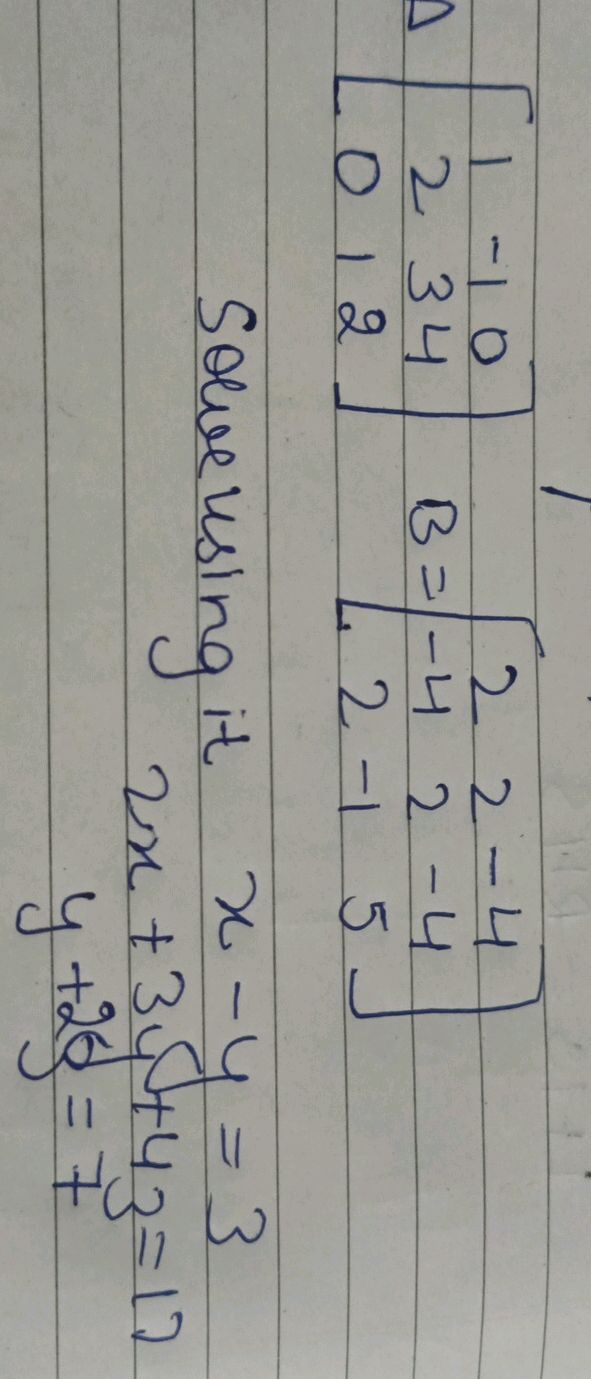 A [1 -1 0
2 3 4
0 1 2] B = [2 2 -4
-4 2 -4
2 -1 5]
Solve using it x - y = 3
2x + 3y + 4z = 17
y + 2z = 7